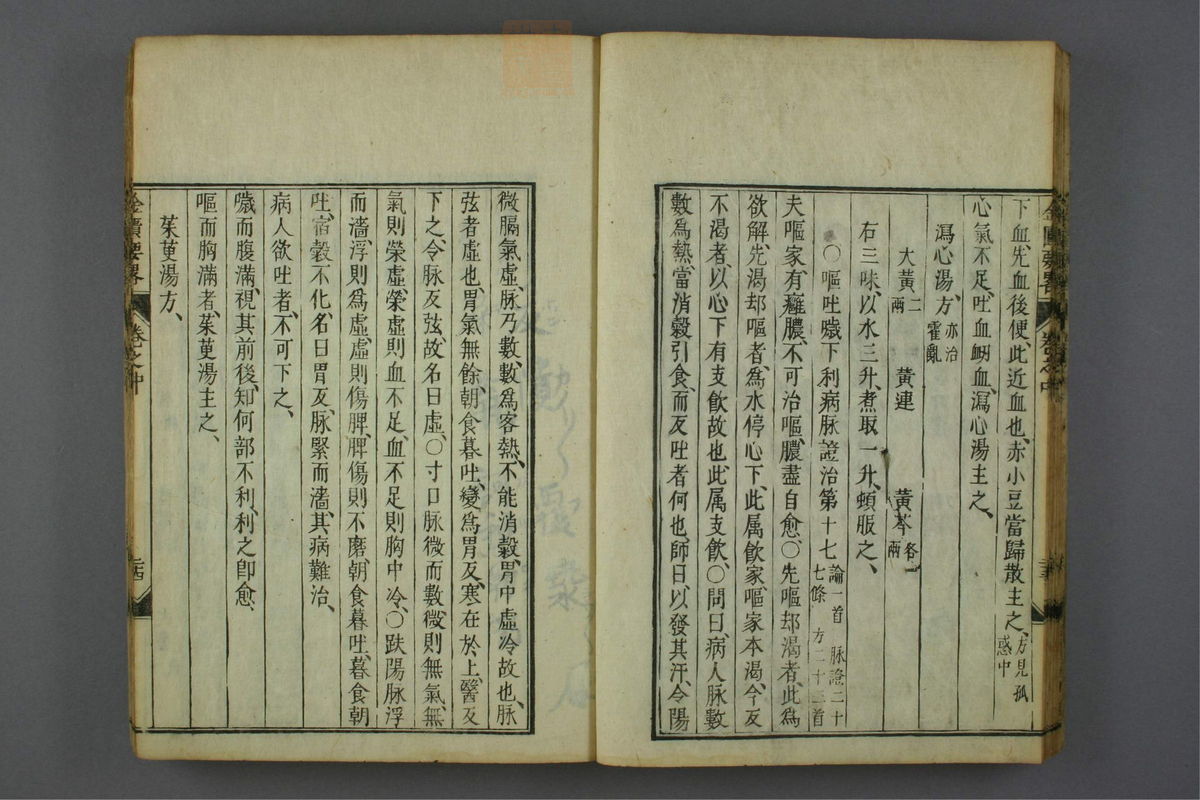 下血、先血後便、此近血也、赤小豆當歸散主之、方見狐惑中
心氣不足、吐血衂血、瀉心湯主之、
瀉心湯方、亦治霍亂
大黃、二兩 黃連 黃芩各一兩
右三味、以水三升、煮取一升、頓服之、
○嘔吐噦下利病脉證治第十七論一首 脉證二十七條 方二十三首
夫嘔家、有癰膿、不可治嘔、膿盡自愈、○先嘔却渴者、此爲
欲解、先渴却嘔者、爲水停心下、此属飲家、嘔家本渴、今反
不渴者、以心下有支飲故也、此属支飲、○問曰、病人脉數
數爲熱、當消穀引食、而反吐者何也、師曰、以發其汗、令陽
微膈氣虛、脉乃數、數爲客熱、不能消穀、胃中虛冷故也、脉
弦者虛也、胃氣無餘、朝食暮吐、變爲胃反、寒在於上、醫反
下之、令脉反弦、故名曰虛、○寸口脉微而數、微則無氣、無
氣則榮虛、榮虛則血不足、血不足則胸中冷、○趺陽脉浮
而濇、浮則爲虛、虛則傷脾、脾傷則不磨、朝食暮吐、暮食朝
吐、宿穀不化、名曰胃反、脉緊而濇、其病難治、
病人欲吐者、不可下之、
噦而腹滿、視其前後、知何部不利、利之卽愈、
嘔而胸滿者、茱萸湯主之、
茱萸湯方、
金匱要畧 卷之中 二十四